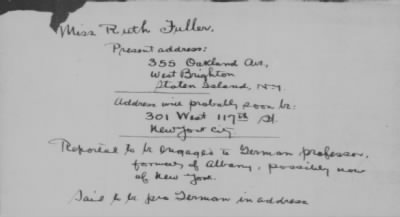 Miss Ruth Fuller.
Present address:
355 Oakland Ave,
West Brighton
Staten Island, N.Y.
Address will probably soon be:
301 West 117th St.
New York City
Reported to be engaged to German professor,
formerly of Albany, possibly now
of New York.
Said to be pro German in address